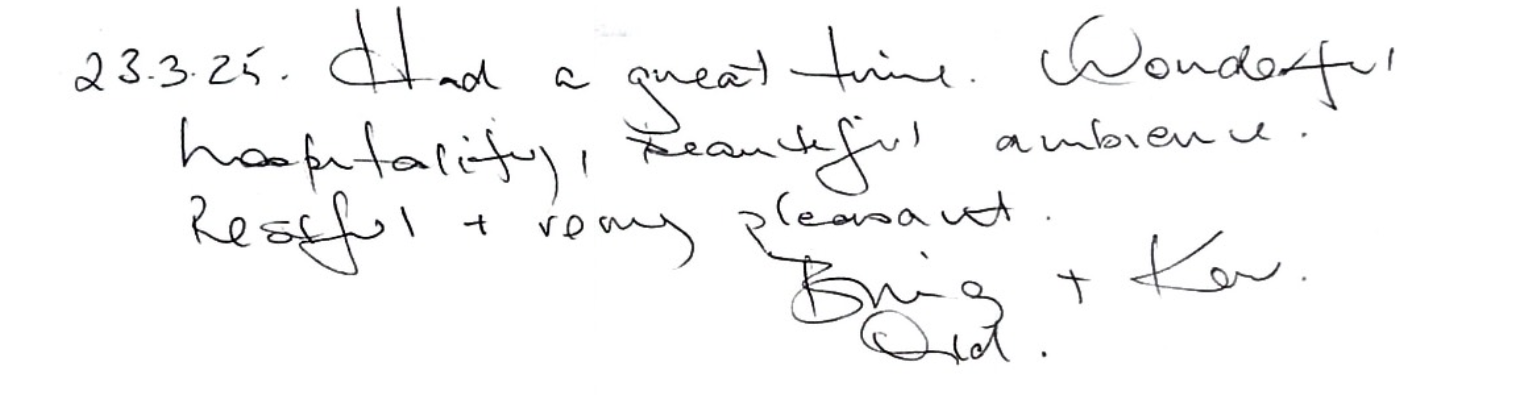 23.3.25. Had a great time. Wonderful
hospitality, beautiful ambience.
Restful + very pleasant.
+ Ken.
Qld.